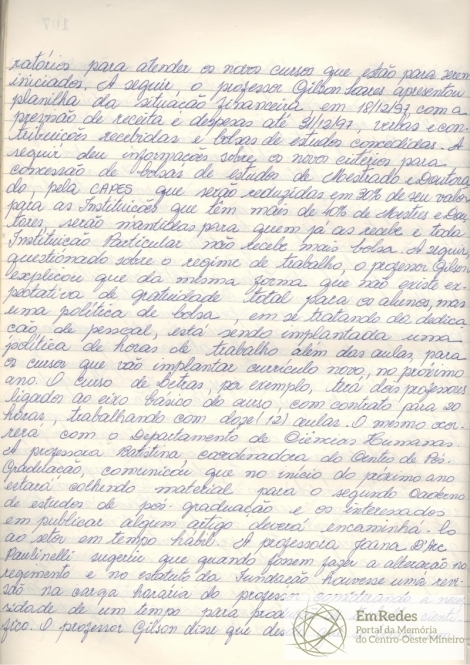 ratórios para atender os novos cursos que estão para serem
iniciados. A seguir, o professor Gilson Soares apresentou
planilha da situação financeira, em 18/12/97, com a
previsão de receita e despesas até 31/12/97, verbas e con-
tribuições recebidas e bolsas de estudos concedidas. A
seguir deu informações sobre os novos critérios para
concessão de bolsas de estudos de Mestrado e Doutora
do, pela CAPES que serão reduzidas em 30% de seu valor
para as Instituições que têm mais de 40% de Mestres e Dou
tores, serão mantidas para quem já as recebe e toda
Instituição Particular não recebe mais bolsa. A seguir,
questionado sobre o regime de trabalho, o professor Gilson
explicou que da mesma forma que não existe ex-
pectativa de gratuidade total para os alunos, mas
uma política de bolsa, em se tratando da dedica
ção, de pessoal, está sendo implantada uma
política de horas de trabalho além das aulas, para
os cursos que vão implantar currículo novo, no próximo
ano. O curso de Letras, por exemplo, terá dois professores
ligados ao eixo básico do curso, com contrato para 20
horas, trabalhando com doze (12) aulas. O mesmo ocor-
rerá com o Departamento de Ciências Humanas.
A professora Batistina, coordenadora do Centro de Pós-
Graduação, comunicou que no início do próximo ano
estará colhendo material para o segundo Caderno
de estudos de pós-graduação e os interessados
em publicar algum artigo deverá encaminhá-lo
ao setor em tempo hábil. A professora Joana D'Arc
Paulinelli sugeriu que quando fossem fazer a alteração no
regimento e no estatuto da Fundação houvesse uma revi-
são na carga horária do professor considerando a neces
sidade de um tempo para
fico. O professor Gilson disse que
EmRedes
Portal da Memória
do Centro-Oeste Mineiro